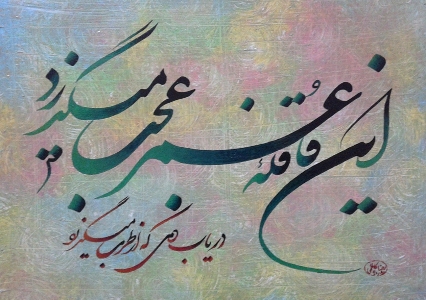 این قافلهٔ عمر عجب میگذرد
دریاب دمی که از طرب میگذرد